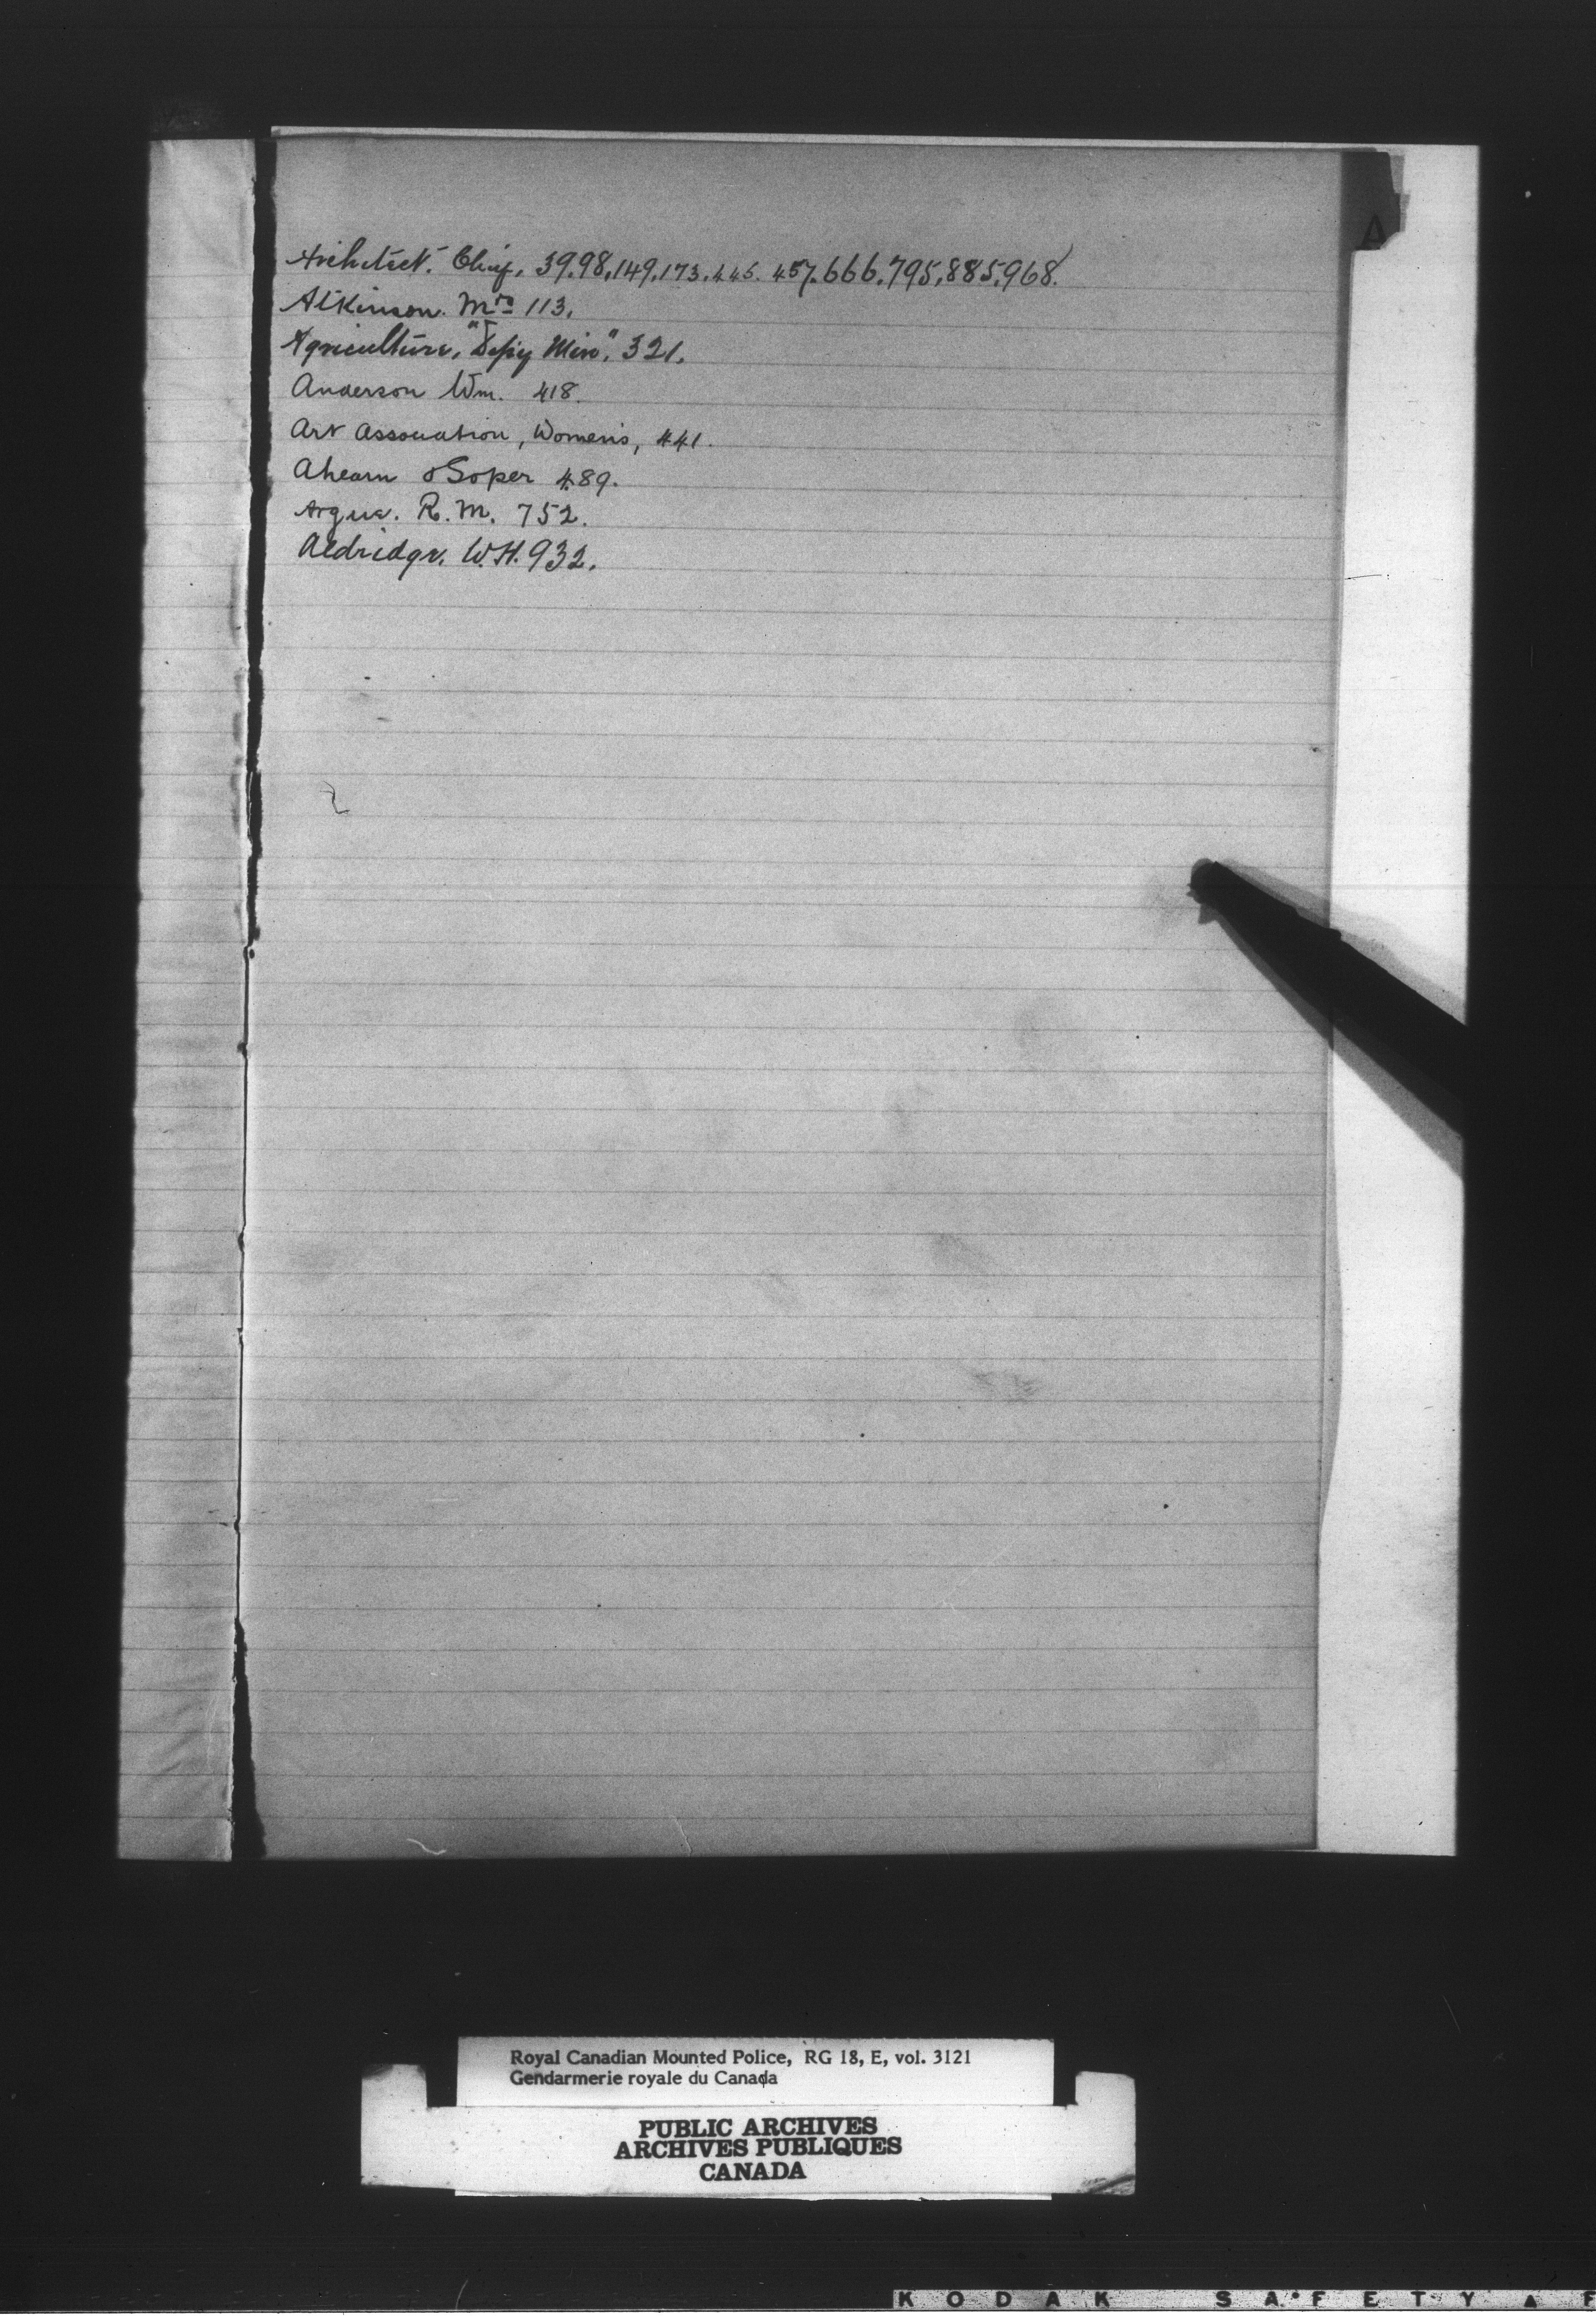 A
Architect. Chief, 39.98,149,173.445. 457.666.795,885,968.
Atkinson. Mrs 113.
Agriculture, "Depy Min". 321.
Anderson Wm. 418.
Art Association, Women's, 441.
Ahearn & Soper 489.
Argue. R. M. 752.
Aldridge. W.H. 932.
Royal Canadian Mounted Police, RG 18, E, vol. 3121
Gendarmerie royale du Canada
PUBLIC ARCHIVES
ARCHIVES PUBLIQUES
CANADA
KODAK SAFETY ▲ F